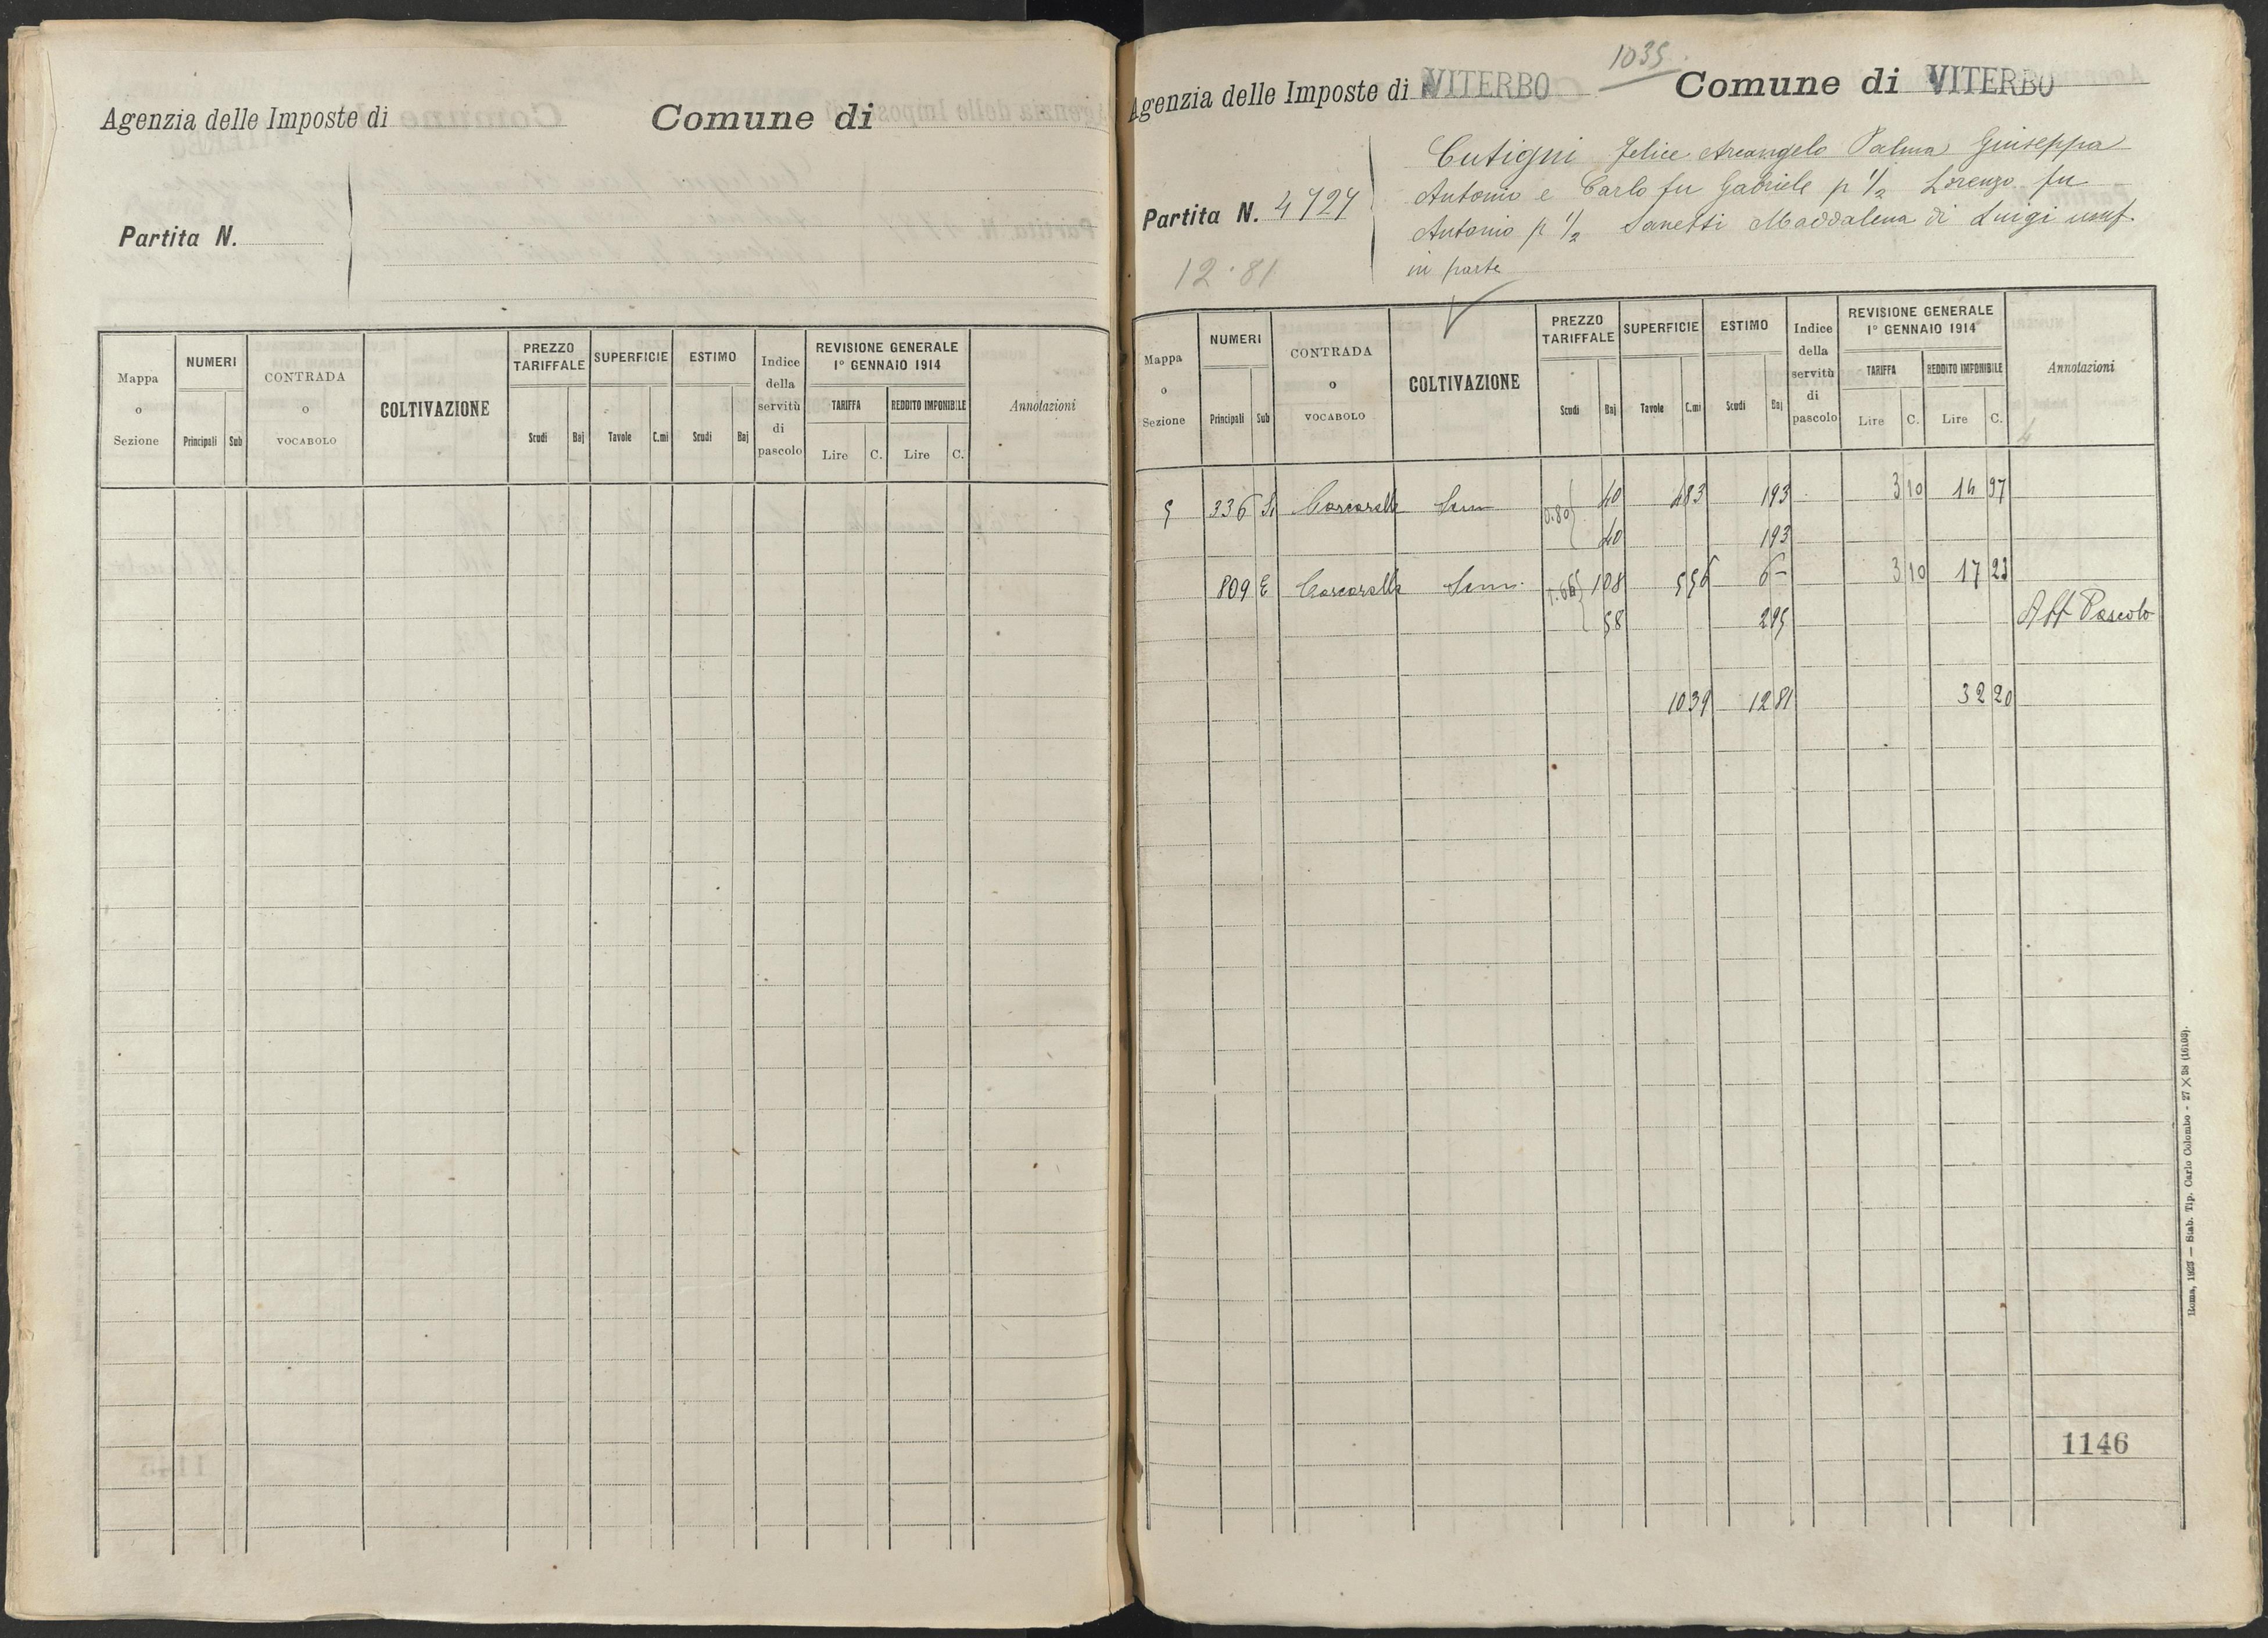 Agenzia delle Imposte di
Comune di
Partita N.
Mappa o Sezione
NUMERI
Principali Sub
CONTRADA o VOCABOLO
COLTIVAZIONE
PREZZO TARIFFALE
Scudi Baj
SUPERFICIE
Tavole C.mi
ESTIMO
Scudi Baj
Indice della servitù di pascolo
REVISIONE GENERALE
1° GENNAIO 1914
TARIFFA
Lire C.
REDDITO IMPONIBILE
Lire C.
Annotazioni
1035
Agenzia delle Imposte di VITERBO Comune di VITERBO
Partita N. 4727
12.81
Cutigni Felice Arcangelo Palma Giuseppa
Antonio e Carlo fu Gabriele p 1/2 Lorenzo fu
Antonio p 1/2 Sanetti Maddalena di Luigi usuf.
in parte
Mappa o Sezione
NUMERI
Principali Sub
CONTRADA o VOCABOLO
COLTIVAZIONE
PREZZO TARIFFALE
Scudi Baj
SUPERFICIE
Tavole C.mi
ESTIMO
Scudi Baj
Indice della servitù di pascolo
REVISIONE GENERALE
1° GENNAIO 1914
TARIFFA
Lire C.
REDDITO IMPONIBILE
Lire C.
Annotazioni
336 Sem 0.80 40 483 193 3 10 14 97
40 193
809 E Sem. 1.66 108 556 6- 3 10 17 23
58 295 Aff Pascolo
1039 1281 32 20
1146
Roma, 1925 — Stab. Tip. Carlo Colombo - 27 X 38 (16103).